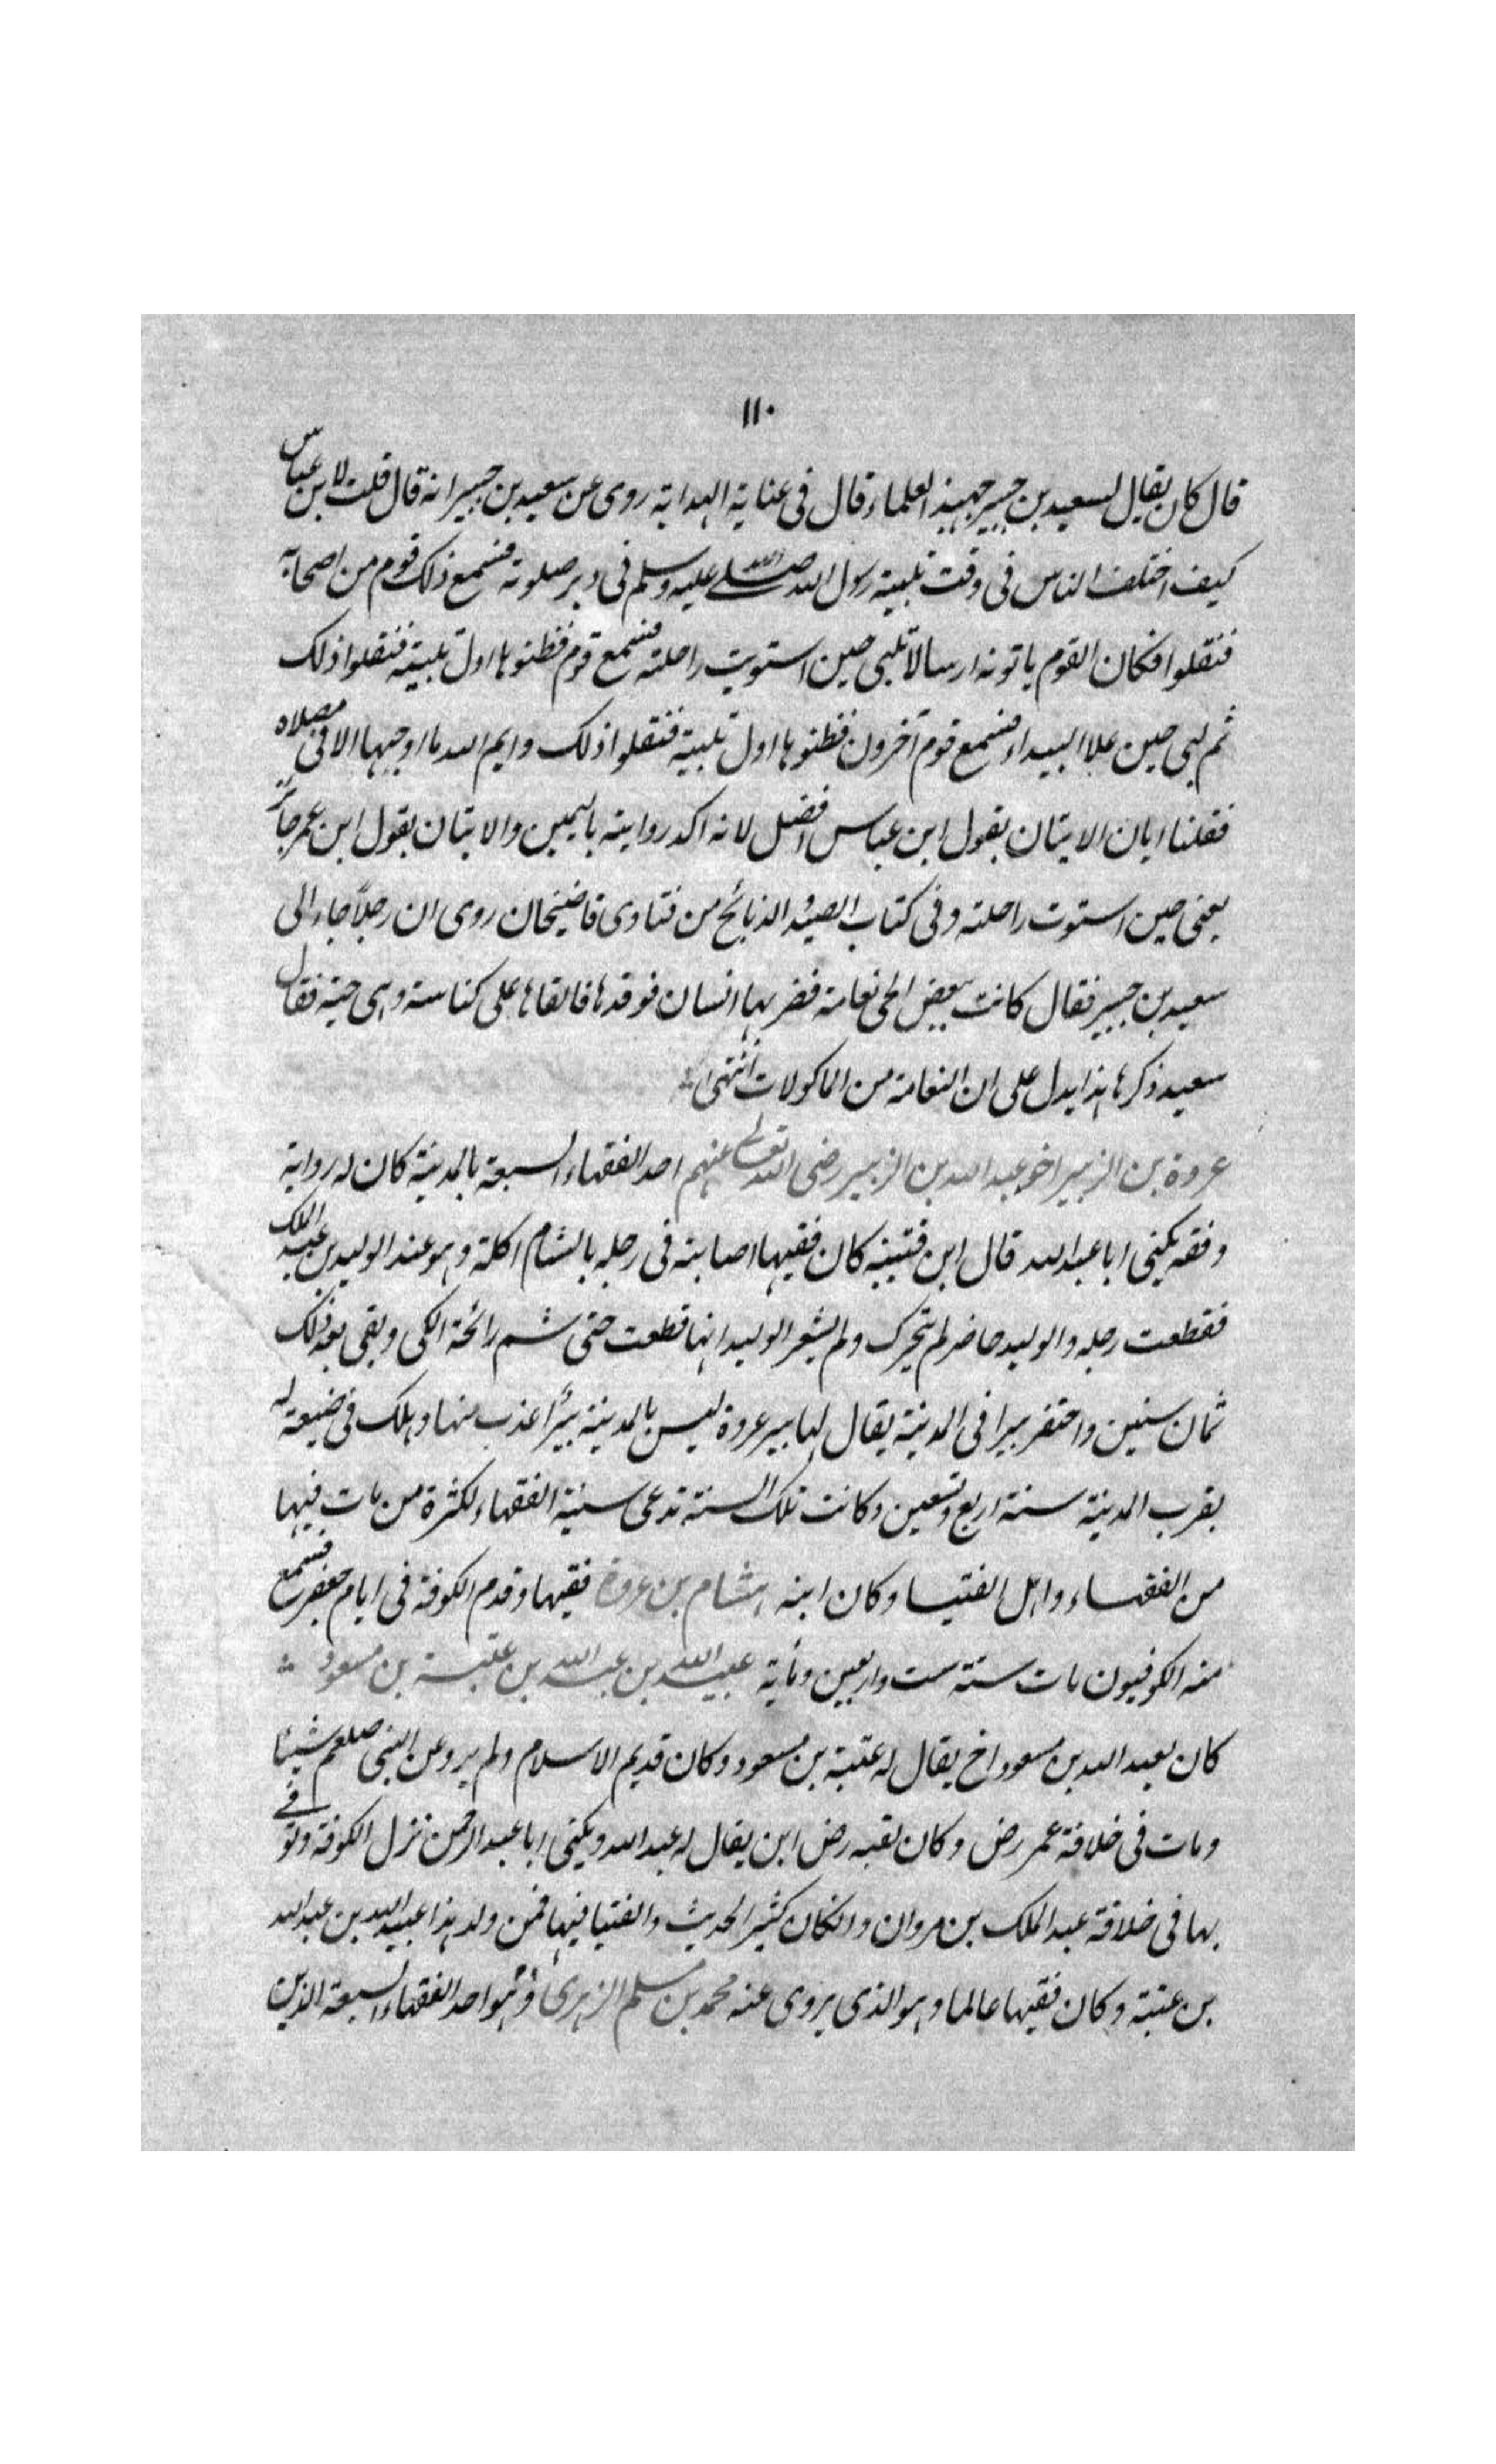 ١١٠
قال كان يقال لسعيد بن جبير جهبذ العلماء قال فى عناية الهداية روى عن سعيد بن جبير انه قال قلت لابن عباس
كيف اختلف الناس فى وقت تلبية رسول الله صلى الله عليه وسلم فى دبر صلوته فسمع ذلك قوم من اصحابه
فنقلوا فكان القوم ياتونه ارسالا تلبى حين استويت راحلته فسمع قوم فظنوها اول تلبيته فنقلوا ذلك
ثم لبى حين علا البيداء فسمع قوم آخرون فظنوها اول تلبية فنقلوا ذلك وايم الله ما اوجبها الا فى مصلاه
فقلنا ابان الاتيان بقول ابن عباس افضل لانه اكد روايته باليمين والاتيان بقول ابن عمر جائز
يعنى حين استوت راحلته وفى كتاب الصيد والذبائح من فتاوى قاضيخان روى ان رجلاً جاء الى
سعيد بن جبير فقال كانت بعض الحى نعامة فضربها انسان فوقدها فالقاها على كناسة وهى حية فقال
سعيد ذكرها هذا يدل على ان النعامة من الماكولات انتهى
عروة بن الزبير اخو عبد الله بن الزبير رضى الله تعالى عنهم احد الفقهاء السبعة بالمدينة كان له رواية
وفقه يكنى ابا عبد الله قال ابن قتيبة كان فقيها اصابته فى رجله بالشام اكلة وهو عند الوليد بن عبد الملك
فقطعت رجله والوليد حاضر لم يتحرك ولم يشعر الوليد انها قطعت حتى شم رائحة الكى وبقى بعد ذلك
ثمان سنين واحتفر بيرا فى المدينة يقال لها بير عروة ليس بالمدينة بيرًا عذب منها وهلك فى ضيعة له
بقرب المدينة سنة اربع وتسعين وكانت تلك السنة تدعى سنة الفقهاء لكثرة من مات فيها
من الفقهاء واهل الفتيا وكان ابنه هشام بن عروة فقيها وقدم الكوفة فى ايام جعفر فسمع
منه الكوفيون مات سنة ست واربعين ومأية عبيد الله بن عبد الله بن عتبة بن مسعود
كان لعبد الله بن مسعود اخ يقال له عتبة بن مسعود وكان قديم الاسلام ولم يرو عن النبى صلعم شيئا
ومات فى خلافة عمر رض وكان لعتبه رض ابن يقال له عبد الله ويكنى ابا عبد الرحمن نزل الكوفة وتوفى
بها فى خلافة عبد الملك بن مروان وانكان كثير الحديث والفتيا فيها فمن ولد هذا عبيد الله بن عبد الله
بن عتبة وكان فقيها عالما وهو الذى يروى عنه محمد بن مسلم الزهرى وهو احد الفقهاء السبعة الذين